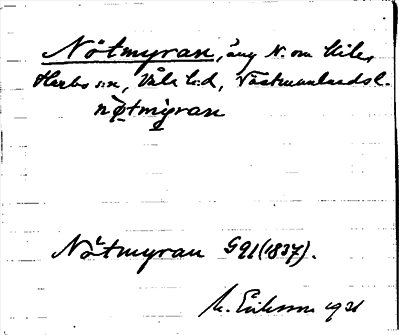 Nötmyran, äng N. om Kile,
Harbo sn, Våla hd, Västmanlands l.
nø̀tmỳran
Nötmyran G91 (1837).
M. Eriksson 1931